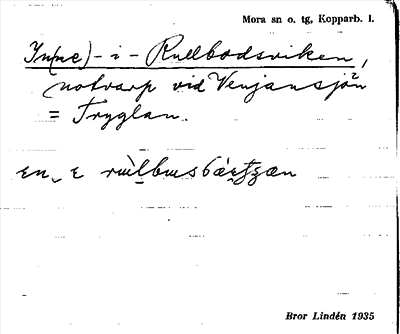 Mora sn o. tg, Kopparb. l.
In(ne) - i - Rullbodsviken,
notvarp vid Venjansjön
= Tryglan.
Bror Lindén 1935